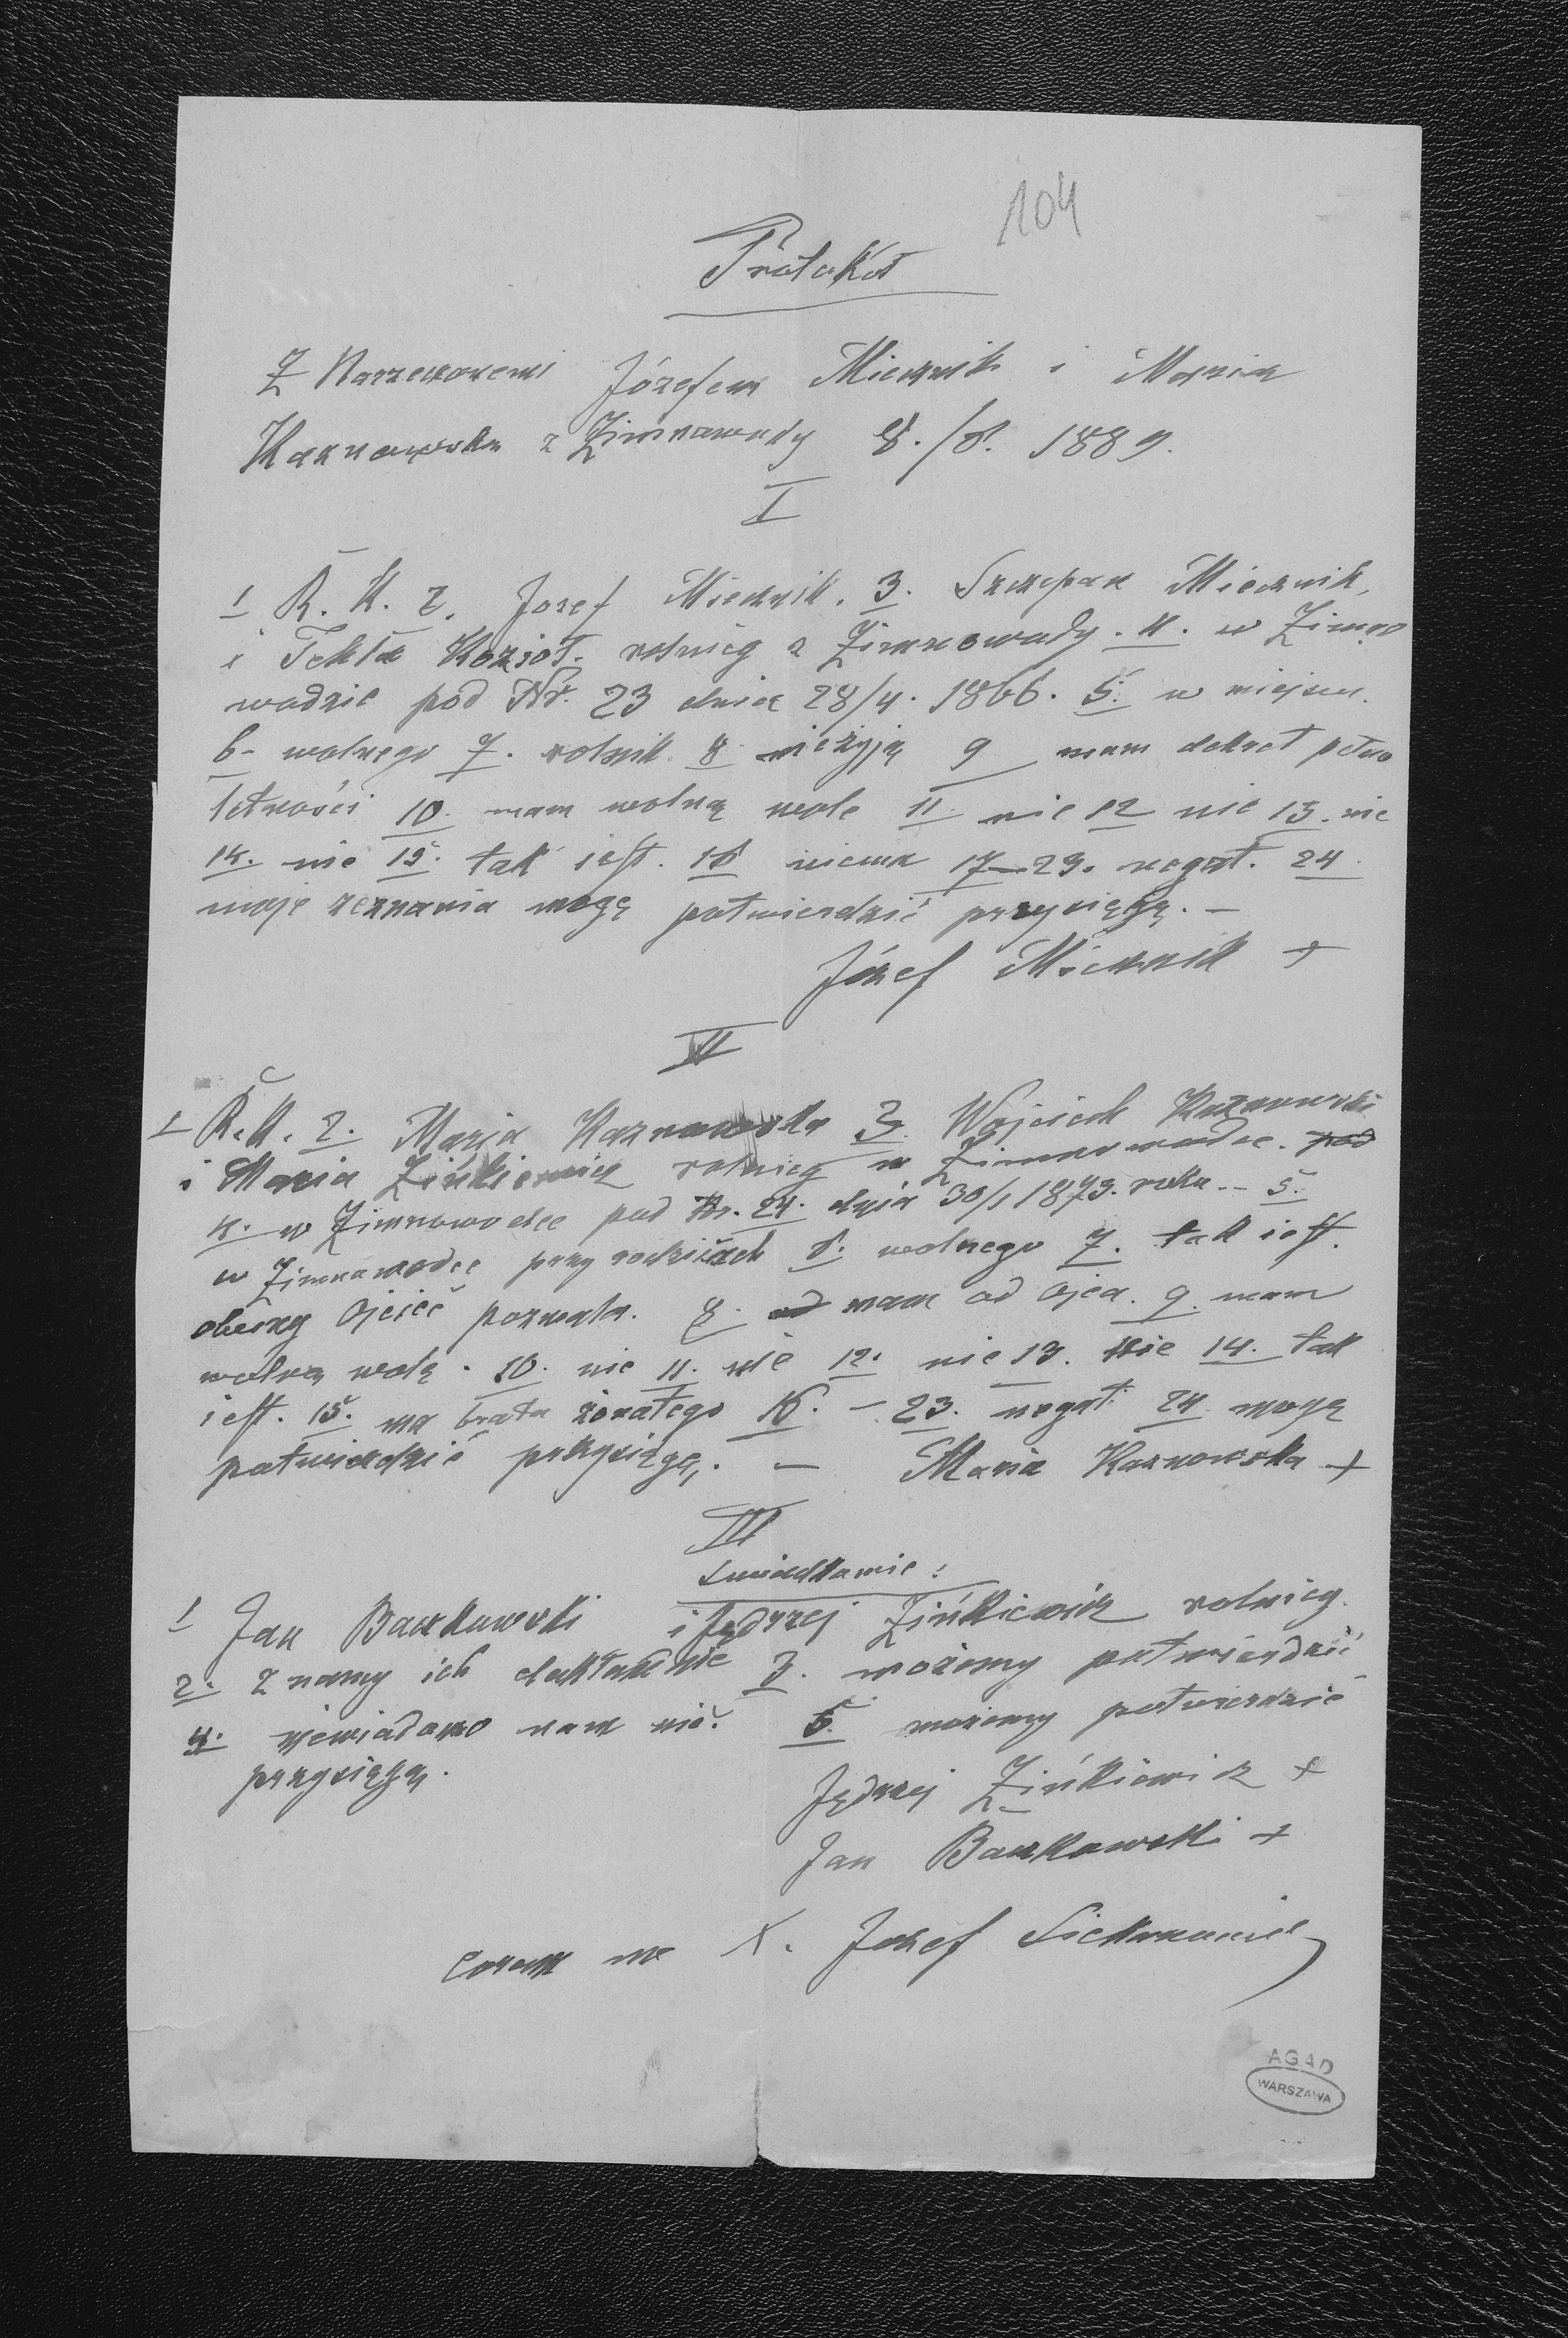 104
Protokół
Z Narzeczonemi Józefem Miecznik i Maria
Kaznowska z Zimnawody 8./8. 1889.
I
1 R. K. 2. Jozef Miecznik. 3. Szczepan Miecznik,
i Tekla Kozioł. rolnicy z Zimnowody. 4. w Zimno
wodzie pod Nr. 23 dnia 28/4. 1866. 5. w miejscu.
6- wolnego 7. rolnik 8 nieżyją 9 mam dekret pełno
letności 10. mam wolną wole 11. nie 12 nie 13. nie
14. nie 15. tak jest. 16 niema 17-23. negat. 24.
moje zeznania mogę potwierdzić przysięgą. -
Józef Miecznik +
II
1 R. K. 2. Marja Kaznowska 3. Wojciech Kaznowski
i Maria Zińkiewicz rolnicy w Zimnowodce. pod
4. w Zimnowodce pod Nr. 24. dnia 30/1 1873. roku. - 5.
w Zimnawodce przy rodzicach 6. wolnego 7. tak jest.
obecny Ojciec pozwala. 8. od mam od ojca. 9. mam
wolną wolę. 10. nie 11. nie 12. nie 13. nie 14. tak
jest. 15. ma brata żonatego 16. - 23. negat. 24 mogę
potwierdzić przysięgą. - Maria Kaznowska +
III
Świadkowie:
1 Jan Baczkowski i Jędrzej Zińkiewicz rolnicy.
2. znamy ich dokładnie 3. możemy potwierdzić
4. niewiadomo nam nic. 5. możemy potwierdzić
przysięgą.
Jędrzej Zińkiewicz +
Jan Baczkowski +
coram me X. Jozef
AGAD
WARSZAWA